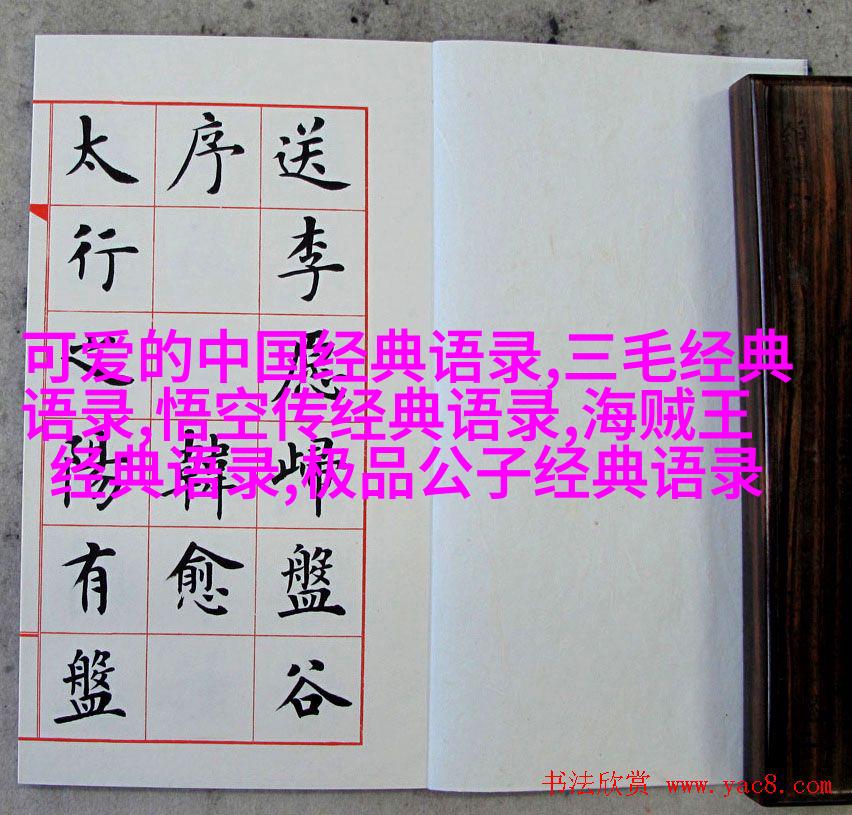 送李愿歸盤谷
序 韓愈
太行之陽有盤
可爱的中国经典语录,三毛经典
语录,悟空传经典语录,海贼王
经典语录,极品公子经典语录
书法欣赏 www.yac8.com